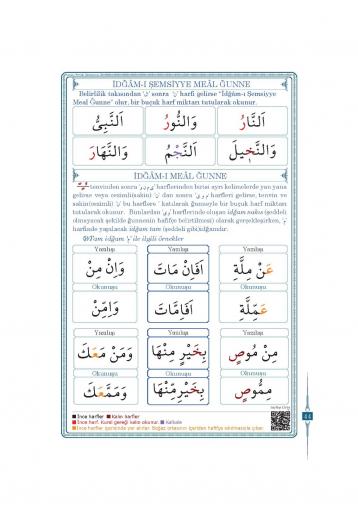 İDĞÂM-I ŞEMSİYYE MEÂL ĞUNNE
Belirlilik takısından "ال" sonra "ن" harfi gelirse "İdğâm-ı Şemsiyye
Meâl Ğunne" olur, bir buçuk harf miktarı tutularak okunur.
اَلنَّارُ وَالنُّورُ اَلنَّبِىُّ
وَالنَّخ۪يلَ اَلنَّجْمُ وَالنَّهَارَ
İDĞÂM-I MEÂL ĞUNNE
tenvinden sonra harflerinden birisi ayrı kelimelerde yan yana
gelirse veya cezimli(sakin) dan sonra harfleri gelirse, tenvin ve
sakin(cezimli) bu harflere katılarak ğunneyle bir buçuk harf miktarı
tutularak okunur. Bunlardan harflerinde oluşan idğam nakıs (şeddeli
olmayacak şekilde ğunnenin hafifçe belirtilmesi) olarak gerçekleşirken,
harfinde yapılacak idğam tam (şeddeli gibi)idğamdır.
Tam idğam "م" ile ilgili örnekler
Yazılışı Yazılışı Yazılışı
عَنْ مِلَّةِ اَفَاِنْ مَاتَ وَاِنْ مِنْ
Okunuşu Okunuşu Okunuşu
عَمِّلَّةِ اَفَاِمَّاتَ وَاِمِّنْ
Yazılışı Yazılışı Yazılışı
مِنْ مُوصٍ بِخَيْرٍ مِنْهَا وَمَنْ مَعَكَ
Okunuşu Okunuşu Okunuşu
مِمُّوصٍ بِخَيْرٍمِّنْهَا وَمَمَّعَكَ
İnce harfler Kalın harfler
İnce harf, Kural gereği kalın okunur. Kalkale
İnce harfler içerisinde yer alırlar. Boğaz ortasının içeriden hafifçe sıkılmasıyla çıkar.
44